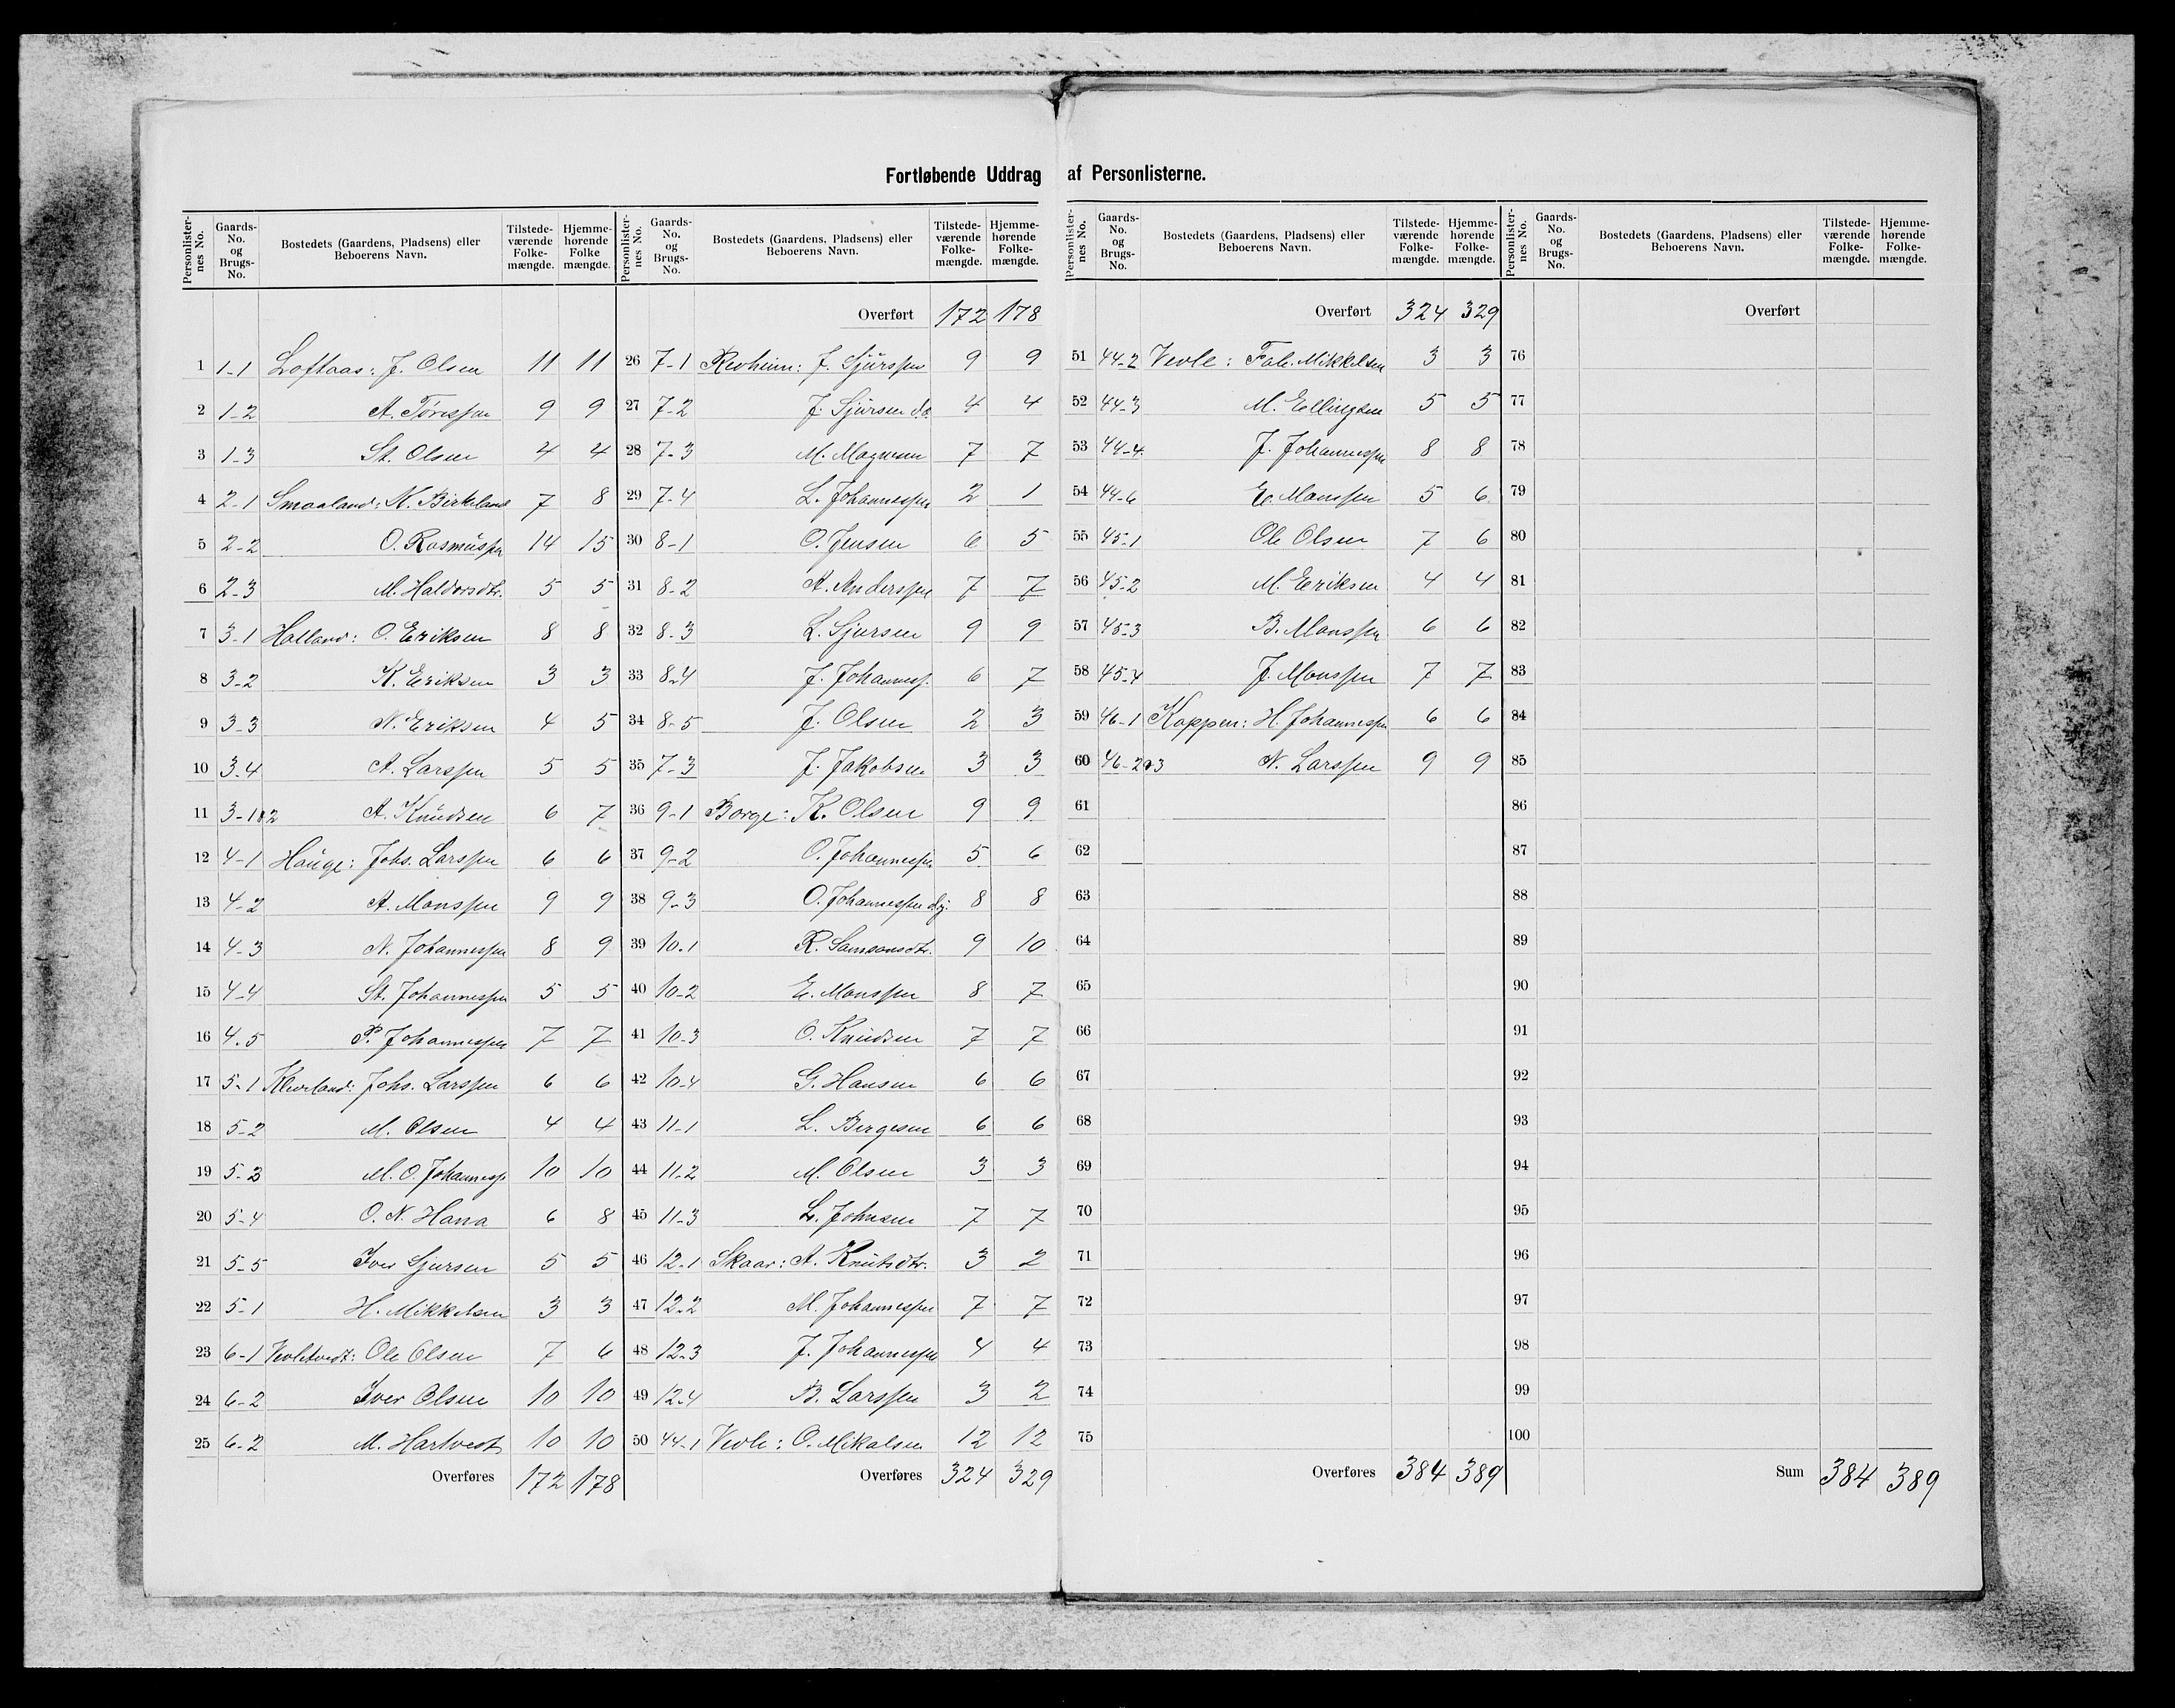 Fortløbende Uddrag af Personlisterne.
Personlister-nes No. Gaards-No. og Brugs-No. Bostedets (Gaardens, Pladsens) eller Beboerens Navn. Tilstede-værende Folke-mængde. Hjemme-hørende Folke mængde.
1 1-1 Loftaas: J. Olsen 11 11
2 1-2 A. Tørrissen 9 9
3 1-3 St. Olsen 4 4
4 2-1 Smaaland: N. Birkeland 7 8
5 2-2 O. Rasmussen 14 15
6 2-3 M. Haldorsdtr. 5 5
7 3-1 Halland: O. Eriksen 8 8
8 3-2 K. Eriksen 3 3
9 3-3 N. Eriksen 4 5
10 3-4 A. Larssen 5 5
11 3-1&2 A. Knudsen 6 7
12 4-1 Hauge: Johs. Larssen 6 6
13 4-2 A. Monssen 9 9
14 4-3 N. Johannessen 8 9
15 4-4 St. Johannessen 5 5
16 4.5 P. Johannessen 7 7
17 5-1 Kleveland: Johs. Larssen 6 6
18 5-2 M. Olsen 4 4
19 5-3 M. O. Johanness 10 10
20 5-4 O. N. Hana 6 8
21 5-5 Iver Sjursen 5 5
22 5-1 H. Mikkelsen 3 3
23 6-1 Vevletvedt: Ole Olsen 7 6
24 6-2 Iver Olsen 10 10
25 6-2 M. Hartvedt 10 10
Overføres 172 178
Personlister-nes No. Gaards-No. og Brugs-No. Bostedets (Gaardens, Pladsens) eller Beboerens Navn. Tilstede-værende Folke-mængde. Hjemme-hørende Folke-mængde.
Overført 172 178
26 7-1 Revheim: J. Sjurssen 9 9
27 7-2 J. Sjursen do. 4 4
28 7-3 M. Magnesen 7 7
29 7-4 L. Johannessen 2 1
30 8-1 O. Jensen 6 5
31 8-2 A. Anderssen 7 7
32 8-3 L. Sjursen 9 9
33 8-4 J. Johanness. 6 7
34 8-5 J. Olsen 2 3
35 7-3 J. Jakobsen 3 3
36 9-1 Borge: K. Olsen 9 9
37 9-2 O. Johannessen 5 6
38 9-3 O. Johannessen 8 8
39 10.1 R. Samsonsdtr. 9 10
40 10-2 E. Monssen 8 7
41 10-3 O. Knudsen 7 7
42 10-4 G. Hansen 6 6
43 11-1 L. Bergesen 6 6
44 11-2 M. Olsen 3 3
45 11-3 L. Johnsen 7 7
46 12-1 Skaar: A. Knutsdtr. 3 2
47 12-2 M. Johannessen 7 7
48 12-3 J. Johannessen 4 4
49 12-4 B. Larssen 3 2
50 44-1 Vevle: O. Mikalsen 12 12
Overføres 324 329
Personlister-nes No. Gaards-No. og Brugs-No. Bostedets (Gaardens, Pladsens) eller Beboerens Navn. Tilstede-værende Folke-mængde. Hjemme-hørende Folke-mængde.
Overført 324 329
51 44-2 Vevle: Mikkelsen 3 3
52 44-3 M. Ellingsen 5 5
53 44-4 J. Johannessen 8 8
54 44-6 E. Monssen 5 6
55 45-1 Ole Olsen 7 6
56 45-2 M. Eriksen 4 4
57 45-3 B. Monssen 6 6
58 45-4 J. Monssen 7 7
59 46-1 Koppen: H. Johannessen 6 6
60 46-2&3 N. Larssen 9 9
61
62
63
64
65
66
67
68
69
70
71
72
73
74
75
Overføres 384 389
Personlister-nes No. Gaards-No. og Brugs-No. Bostedets (Gaardens, Pladsens) eller Beboerens Navn. Tilstede-værende Folke-mængde. Hjemme-hørende Folke-mængde.
Overført
76
77
78
79
80
81
82
83
84
85
86
87
88
89
90
91
92
93
94
95
96
97
98
99
100
Sum 384 389